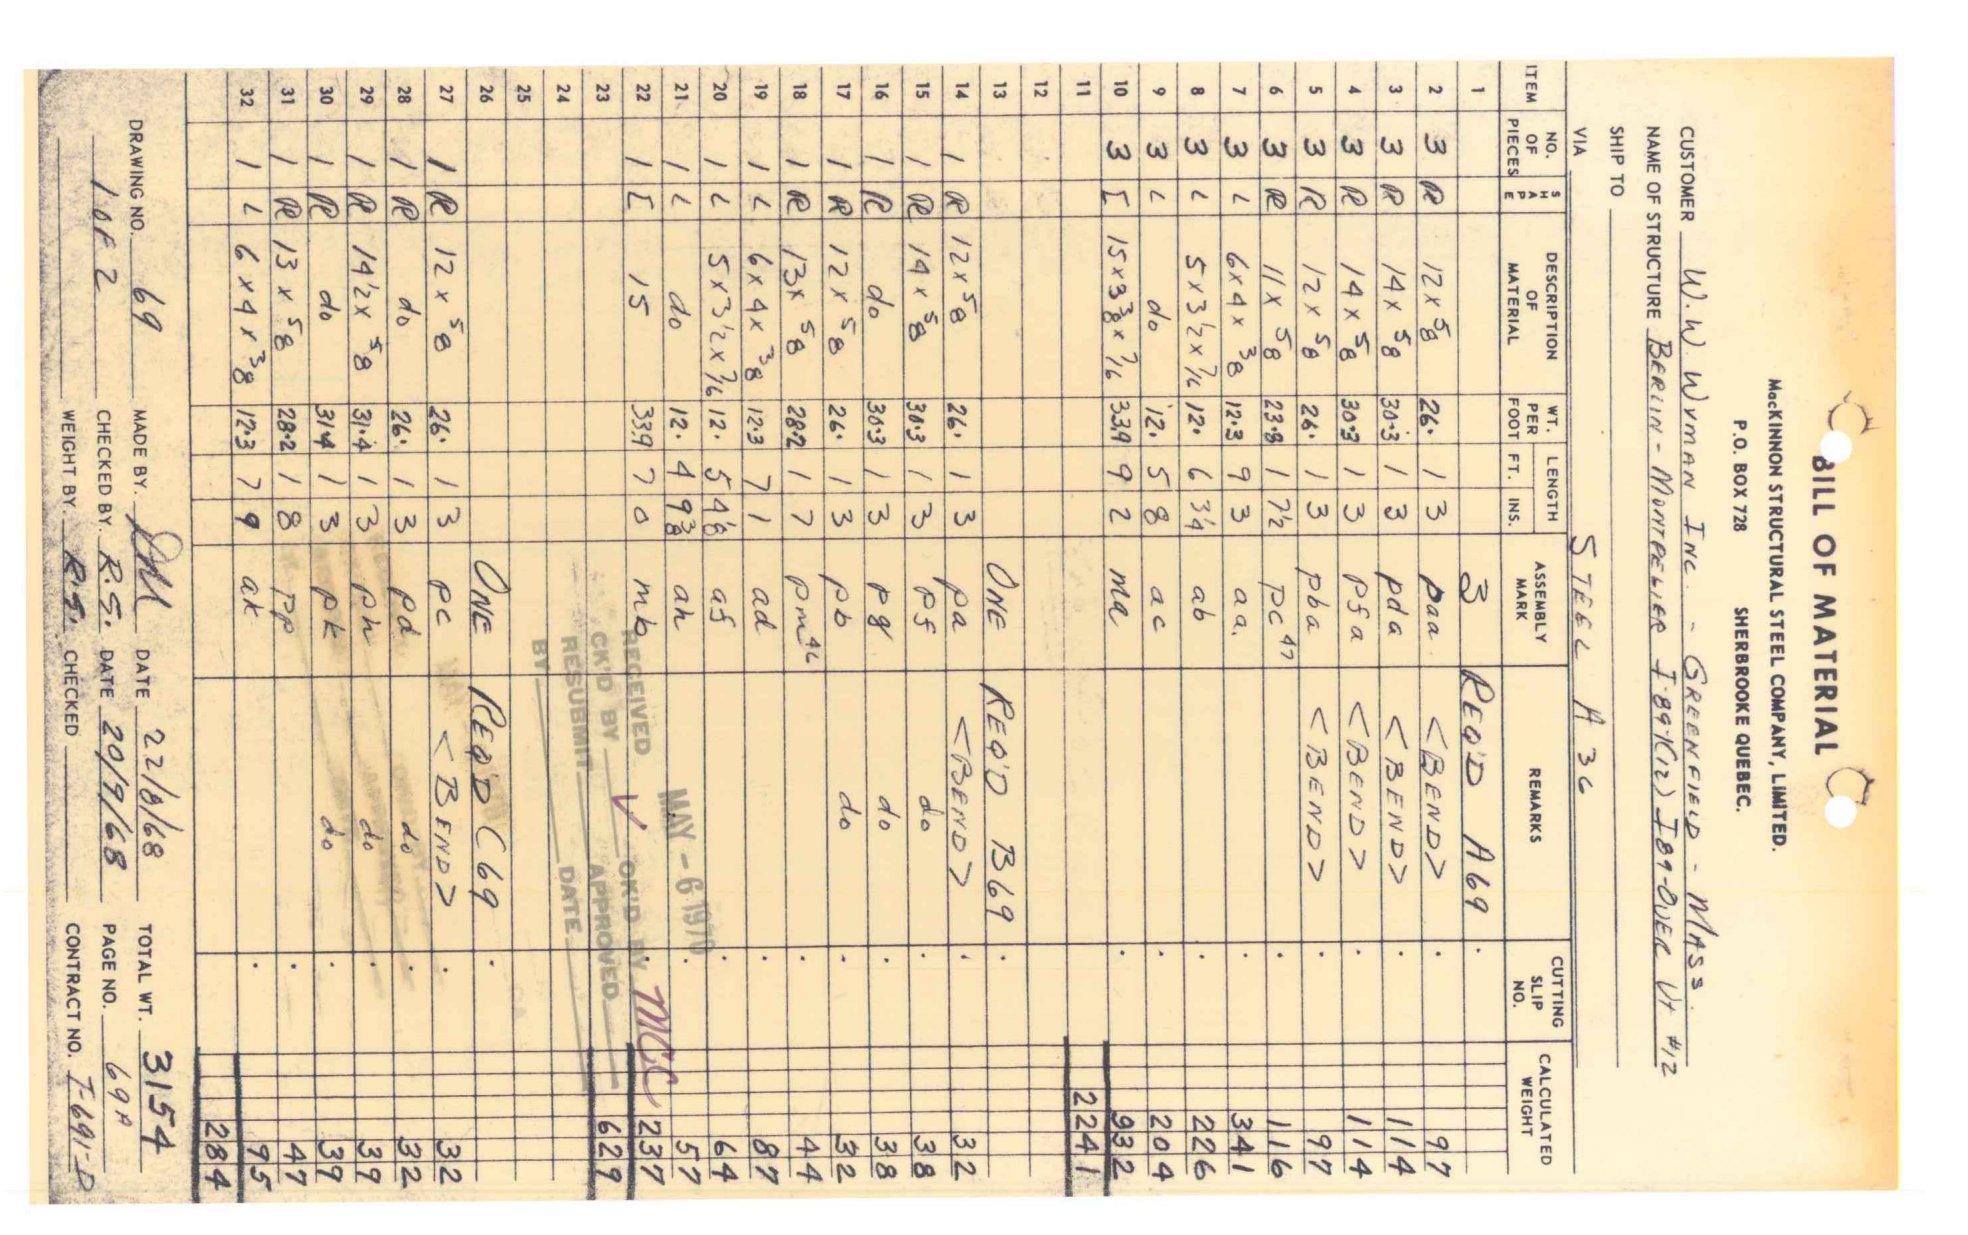 BILL OF MATERIAL
MacKINNON STRUCTURAL STEEL COMPANY, LIMITED.
P.O. BOX 728 SHERBROOKE QUEBEC.
CUSTOMER W.W. WYMAN INC. - GREENFIELD - MASS.
NAME OF STRUCTURE BERLIN - MONTPELIER I-89-K(12) I89-OVER Vt #12
SHIP TO
VIA STEEL A 36
ITEM NO. OF PIECES SHAPE DESCRIPTION OF MATERIAL WT. PER FOOT LENGTH FT. INS. ASSEMBLY MARK REMARKS CUTTING SLIP NO. CALCULATED WEIGHT
1 3 REQ'D A69
2 3 PL 12 x 5/8 26. 1 3 paa <BEND> 97
3 3 PL 14 x 5/8 30.3 1 3 pda <BEND> 114
4 3 PL 14 x 5/8 30.3 1 3 pfa <BEND> 114
5 3 PL 12 x 5/8 26. 1 3 pba <BEND> 97
6 3 PL 11 x 5/8 23.8 1 7 1/2 pc 47 116
7 3 L 6 x 4 x 3/8 12.3 9 3 aa. 341
8 3 L 5 x 3 1/2 x 7/16 12. 6 3 1/4 ab 226
9 3 L do 12. 5 8 ac 204
10 3 [ 15 x 3 3/8 x 7/16 33.9 9 2 ma 932
11 2241
12
13 ONE REQ'D B69
14 1 PL 12 x 5/8 26. 1 3 pa <BEND> 32
15 1 PL 14 x 5/8 30.3 1 3 pf do 38
16 1 PL do 30.3 1 3 pg do 38
17 1 PL 12 x 5/8 26. 1 3 pb do 32
18 1 PL 13 x 5/8 28.2 1 7 pm 46 44
19 1 L 6 x 4 x 3/8 12.3 7 1 ad 87
20 1 L 5 x 3 1/2 x 7/16 12. 5 4 1/8 af 64
21 1 L do 12. 4 9 3/8 ah 57
22 1 [ 15 33.9 7 0 mb 237
23 629
24
25
26 ONE REQ'D C69
27 1 PL 12 x 5/8 26. 1 3 pc <BEND> 32
28 1 PL do 26. 1 3 pd do 32
29 1 PL 14 1/2 x 5/8 31.4 1 3 ph do 39
30 1 PL do 31.4 1 3 pk do 39
31 1 PL 13 x 5/8 28.2 1 8 pp 47
32 1 L 6 x 4 x 3/8 12.3 7 9 ak 95
284
MAY - 6 1970
RECEIVED OK'D BY MCC
CK'D BY APPROVED
RESUBMIT DATE
BY
DRAWING NO. 69 MADE BY. DATE 22/8/68 TOTAL WT. 3154
1 OF 2 CHECKED BY. R.S. DATE 20/9/68 PAGE NO. 69A
WEIGHT BY. R.S. CHECKED CONTRACT NO. T-691-D